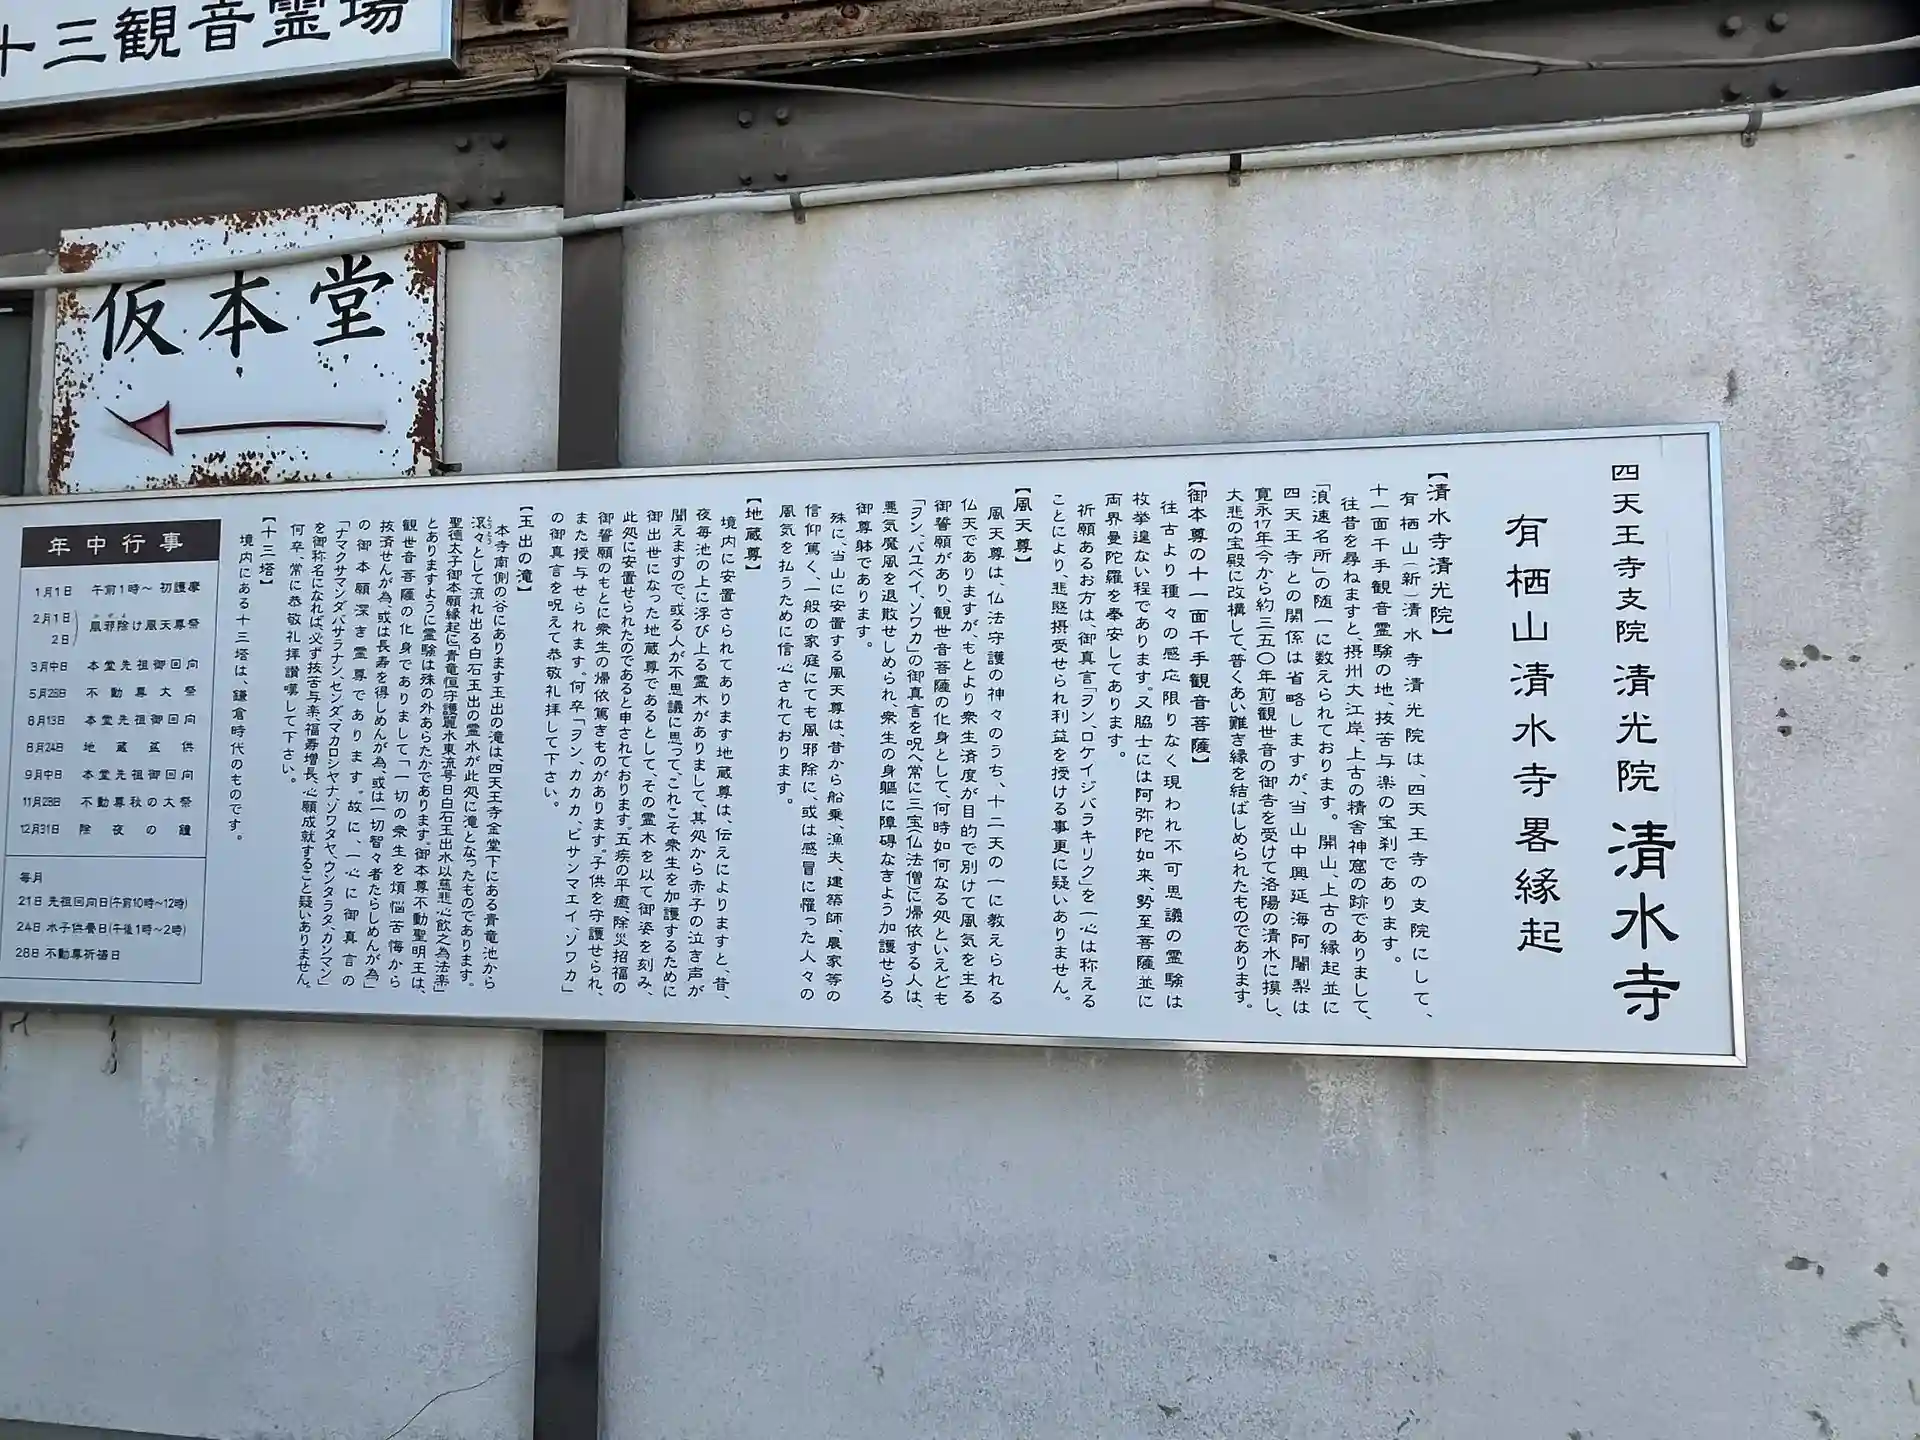 十三観音霊場
仮本堂
四天王寺支院 清光院 清水寺
有栖山清水寺畧縁起
【清水寺清光院】
有栖山(新)清水寺清光院は、四天王寺の支院にして、
十一面千手観音霊験の地、抜苦与楽の宝刹であります。
往昔を尋ねますと、摂州大江岸、上古の精舎神窟の跡でありまして、
「浪速名所」の随一に数えられております。開山、上古の縁起並に
四天王寺との関係は省略しますが、当山中興延海阿闍梨は
寛永17年(今から約三五〇年前)観世音の御告を受けて洛陽の清水に摸し、
大悲の宝殿に改構して、普くあい難き縁を結ばしめられたものであります。
【御本尊の十一面千手観音菩薩】
往古より種々の感応限りなく現われ不可思議の霊験は
枚挙遑ない程であります。又脇士には阿弥陀如来、勢至菩薩並に
両界曼陀羅を奉安してあります。
祈願あるお方は、御真言「ヲン、ロケイジバラキリク」を一心は称える
ことにより、悲愍摂受せられ利益を授ける事更に疑いありません。
【風天尊】
風天尊は、仏法守護の神々のうち、十二天の一に教えられる
仏天でありますが、もとより衆生済度が目的で別けて風気を主る
御誓願があり、観世音菩薩の化身として、何時如何なる処といえども
「ヲン、バユベイ、ソワカ」の御真言を呪へ常に三宝(仏法僧)に帰依する人は、
悪気魔風を退散せしめられ、衆生の身軀に障碍なきよう加護せらる
御尊躰であります。
殊に、当山に安置する風天尊は、昔から船乗、漁夫、建築師、農家等の
信仰篤く、一般の家庭にても風邪除に、或は感冒に罹った人々の
風気を払うために信心されております。
【地蔵尊】
境内に安置さられてあります地蔵尊は、伝えによりますと、昔、
夜毎池の上に浮び上る霊木がありまして、其処から赤子の泣き声が
聞えますので、或る人が不思議に思って、これこそ衆生を加護するために
御出世になった地蔵尊であるとして、その霊木を以て御姿を刻み、
此処に安置せられたのであると申されております。五疾の平癒、除災招福の
御誓願のもとに衆生の帰依篤きものがあります。子供を守護せられ、
また授与せられます。何卒「ヲン、カカカ、ビサンマエイ、ソワカ」
の御真言を呪えて恭敬礼拝して下さい。
【玉出の滝】
本寺南側の谷にあります玉出の滝は、四天王寺金堂下にある青竜池から
滾々として流れ出る白石玉出の霊水が此処に滝となったものであります。
聖徳太子御本願縁起に「青竜恒守護麗水東流号曰白石玉出水以慈悲心飲之為法楽」
とありますように霊験は殊の外あらたかであります。御本尊不動聖明王は、
観世音菩薩の化身でありまして「一切の衆生を煩悩苦悔から
抜済せんが為、或は長寿を得しめんが為、或は一切智々者たらしめんが為」
の御本願深き霊尊であります。故に、一心に御真言の
「ナマクサマンダバサラナン、センダ、マカロシヤナ、ソワタヤ、ウンタラタ、カンマン」
を御称名になれば、必ず抜苦与楽、福寿増長、心願成就すること疑いありません。
何卒、常に恭敬礼拝讃嘆して下さい。
【十三塔】
境内にある十三塔は、鎌倉時代のものです。
年中行事
1月1日 午前1時～ 初護摩
2月1日
2日 風邪除け風天尊祭
3月中日 本堂先祖御回向
5月28日 不動尊大祭
8月13日 本堂先祖御回向
8月24日 地蔵盆供
9月中日 本堂先祖御回向
11月28日 不動尊秋の大祭
12月31日 除夜の鐘
毎月
21日 先祖回向日(午前10時～12時)
24日 水子供養日(午後1時～2時)
28日 不動尊祈禱日